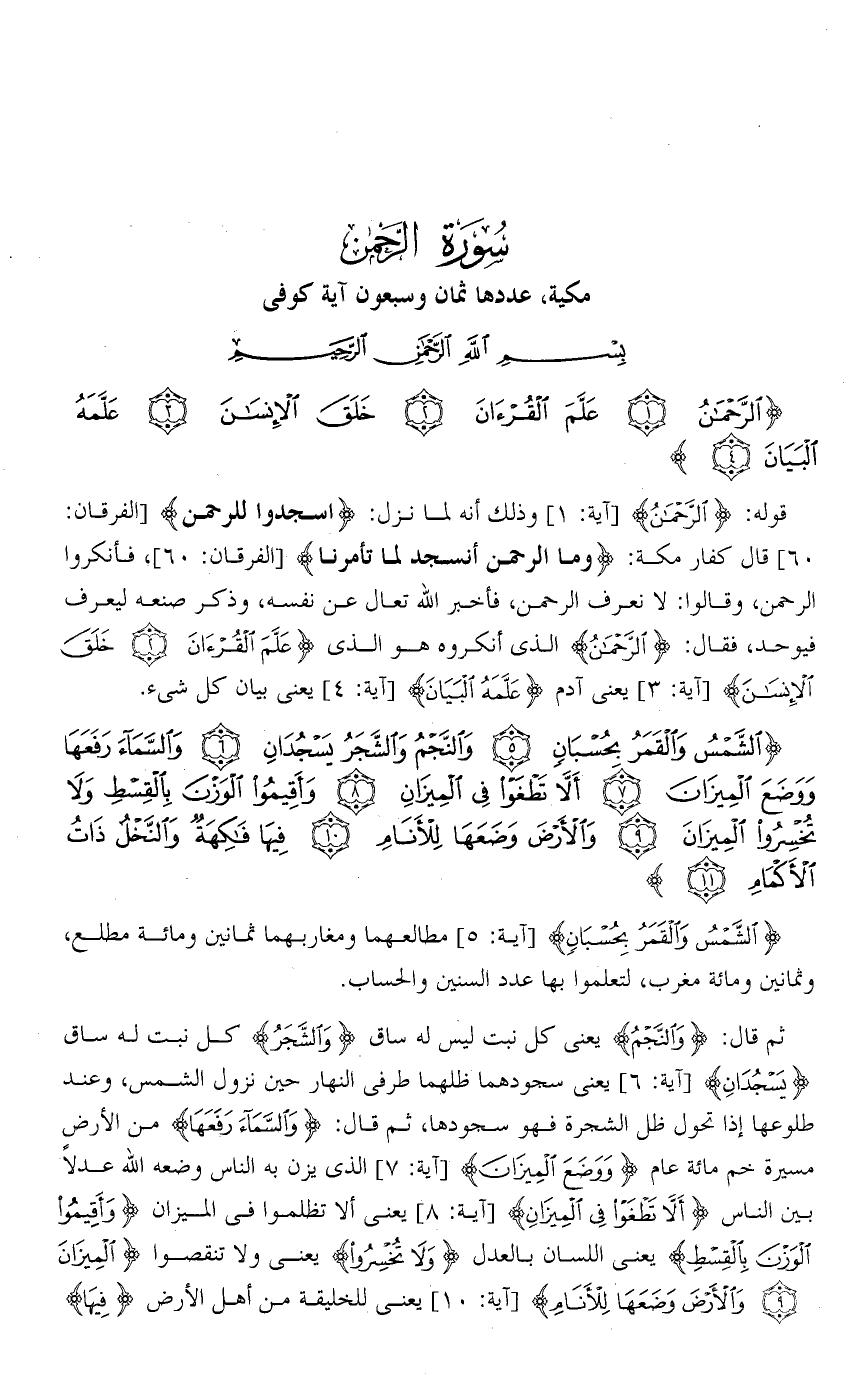 سُورَةُ الرَّحْمَٰنِ
مكية، عددها ثمان وسبعون آية كوفى
بِسْمِ ٱللَّهِ ٱلرَّحْمَٰنِ ٱلرَّحِيمِ
﴿ٱلرَّحْمَٰنُ ۝١ عَلَّمَ ٱلْقُرْءَانَ ۝٢ خَلَقَ ٱلْإِنسَٰنَ ۝٣ عَلَّمَهُ
ٱلْبَيَانَ ۝٤﴾
قوله: ﴿ٱلرَّحْمَٰنُ﴾ [آية: ١] وذلك أنه لما نزل: ﴿اسجدوا للرحمن﴾ [الفرقان:
٦٠] قال كفار مكة: ﴿وما الرحمن أنسجد لما تأمرنا﴾ [الفرقان: ٦٠]، فأنكروا
الرحمن، وقالوا: لا نعرف الرحمن، فأخبر الله تعال عن نفسه، وذكر صنعه ليعرف
فيوحد، فقال: ﴿ٱلرَّحْمَٰنُ﴾ الذى أنكروه هو الذى ﴿عَلَّمَ ٱلْقُرْءَانَ ۝٢ خَلَقَ
ٱلْإِنسَٰنَ﴾ [آية: ٣] يعنى آدم ﴿عَلَّمَهُ ٱلْبَيَانَ﴾ [آية: ٤] يعنى بيان كل شىء.
﴿ٱلشَّمْسُ وَٱلْقَمَرُ بِحُسْبَانٍ ۝٥ وَٱلنَّجْمُ وَٱلشَّجَرُ يَسْجُدَانِ ۝٦ وَٱلسَّمَآءَ رَفَعَهَا
وَوَضَعَ ٱلْمِيزَانَ ۝٧ أَلَّا تَطْغَوْا۟ فِى ٱلْمِيزَانِ ۝٨ وَأَقِيمُوا۟ ٱلْوَزْنَ بِٱلْقِسْطِ وَلَا
تُخْسِرُوا۟ ٱلْمِيزَانَ ۝٩ وَٱلْأَرْضَ وَضَعَهَا لِلْأَنَامِ ۝١٠ فِيهَا فَٰكِهَةٌ وَٱلنَّخْلُ ذَاتُ
ٱلْأَكْمَامِ ۝١١﴾
﴿ٱلشَّمْسُ وَٱلْقَمَرُ بِحُسْبَانٍ﴾ [آية: ٥] مطالعهما ومغاربهما ثمانين ومائة مطلع،
وثمانين ومائة مغرب، لتعلموا بها عدد السنين والحساب.
ثم قال: ﴿وَٱلنَّجْمُ﴾ يعنى كل نبت ليس له ساق ﴿وَٱلشَّجَرُ﴾ كل نبت له ساق
﴿يَسْجُدَانِ﴾ [آية: ٦] يعنى سجودهما ظلهما طرفى النهار حين نزول الشمس، وعند
طلوعها إذا تحول ظل الشجرة فهو سجودها، ثم قال: ﴿وَٱلسَّمَآءَ رَفَعَهَا﴾ من الأرض
مسيرة خم مائة عام ﴿وَوَضَعَ ٱلْمِيزَانَ﴾ [آية: ٧] الذى يزن به الناس وضعه الله عدلاً
بين الناس ﴿أَلَّا تَطْغَوْا۟ فِى ٱلْمِيزَانِ﴾ [آية: ٨] يعنى ألا تظلموا فى الميزان ﴿وَأَقِيمُوا۟
ٱلْوَزْنَ بِٱلْقِسْطِ﴾ يعنى اللسان بالعدل ﴿وَلَا تُخْسِرُوا۟﴾ يعنى ولا تنقصوا ﴿ٱلْمِيزَانَ
۝٩ وَٱلْأَرْضَ وَضَعَهَا لِلْأَنَامِ﴾ [آية: ١٠] يعنى للخليقة من أهل الأرض ﴿فِيهَا﴾